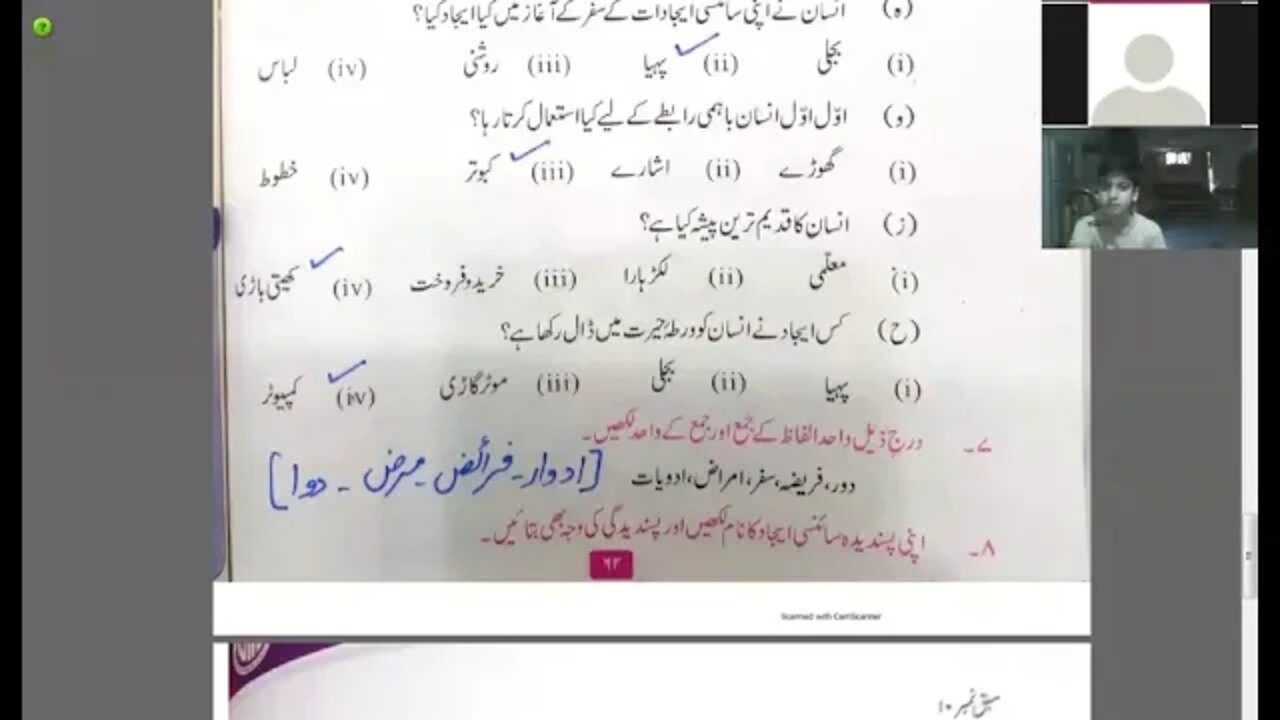 (ہ) انسان نے اپنی سائنسی ایجادات کے سفر کے آغاز میں کیا ایجاد کیا؟
(i) بجلی (ii) پہیا (iii) روشنی (iv) لباس
(و) اوّل اوّل انسان باہمی رابطے کے لیے کیا استعمال کرتا رہا؟
(i) گھوڑے (ii) اشارے (iii) کبوتر (iv) خطوط
(ز) انسان کا قدیم ترین پیشہ کیا ہے؟
(i) معلّمی (ii) لکڑہارا (iii) خرید و فروخت (iv) کھیتی باڑی
(ح) کس ایجاد نے انسان کو ورطۂ حیرت میں ڈال رکھا ہے؟
(i) پہیا (ii) بجلی (iii) موٹر گاڑی (iv) کمپیوٹر
۷۔ درج ذیل واحد الفاظ کے جمع اور جمع کے واحد لکھیں۔
دور، فریضہ، سفر، امراض، ادویات [ادوار۔ فرائض۔ مرض۔ دوا]
۸۔ اپنی پسندیدہ سائنسی ایجاد کا نام لکھیں اور پسندیدگی کی وجہ بھی بتائیں۔
۶۳
Scanned with CamScanner
سبق نمبر ۱۰